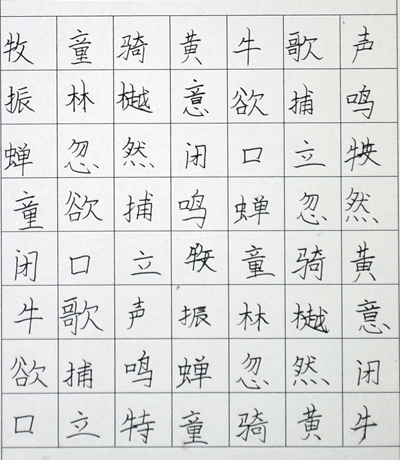 牧童骑黄牛歌声
振林樾意欲捕鸣
蝉忽然闭口立
童欲捕鸣蝉忽然
闭口立牧童骑黄
牛歌声振林樾意
欲捕鸣蝉忽然闭
口立特童骑黄牛